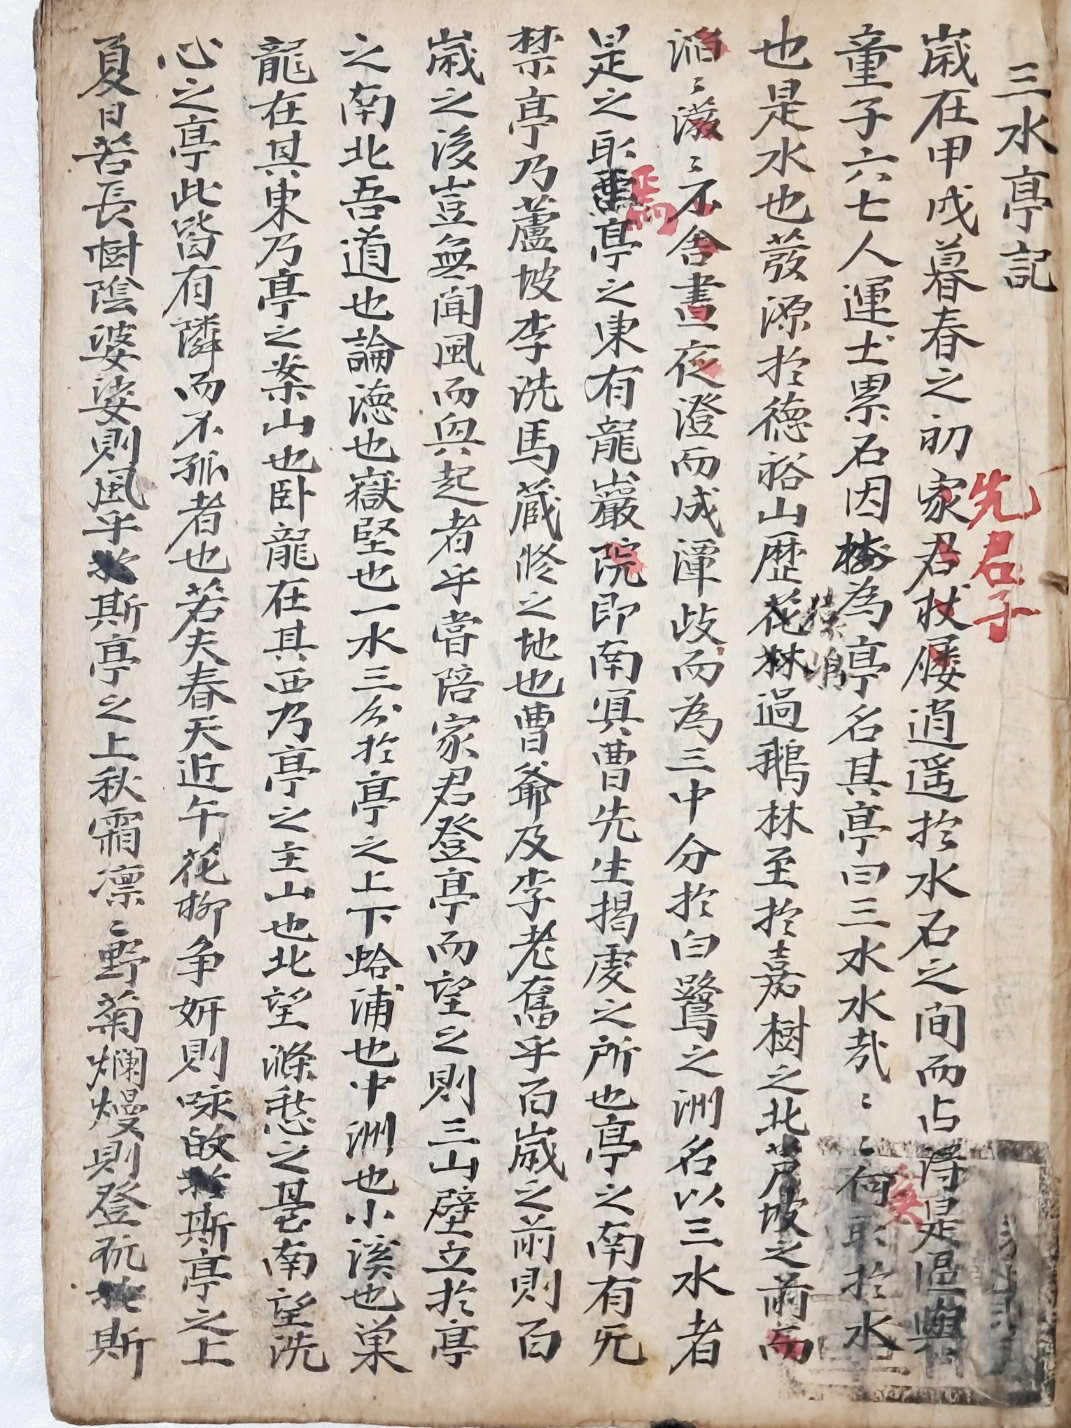 三水亭記
歲在甲戌暮春之初家君杖屨逍遥於水石之間而占得是區與
先君子
童子六七人運土累石因樹為亭名其亭曰三水水哉〻〻何取於水
奚
也是水也發源於德裕山歷花林過鵝林至於嘉樹之北芦坡之前而
猿鳴
滔〻潑〻不舍晝夜澄而成潭歧而為三中分於白鷺之洲名以三水者
是之取焉亭之東有龍巖院即南冥曺先生揭虔之所也亭之南有旡
焉
禁亭乃蘆坡李洗馬蔵修之地也曺爺及李老奮乎百歲之前則百
歲之後豈無聞風而興起者乎嘗陪家君登亭而望之則三山壁立於亭
之南北吾道也論德也嶽堅也一水三分於亭之上下蛤浦也中洲也小溪也巢
龍在其東乃亭之案山也卧龍在其西乃亭之主山也北望滌愁之㙜南望洗
心之亭此皆有隣而不孤者也若夫春天近午花柳争妍則咏於斯亭之上
夏日苦長樹陰婆娑則風乎於斯亭之上秋霜凛〻野菊爛熳則登玩於斯